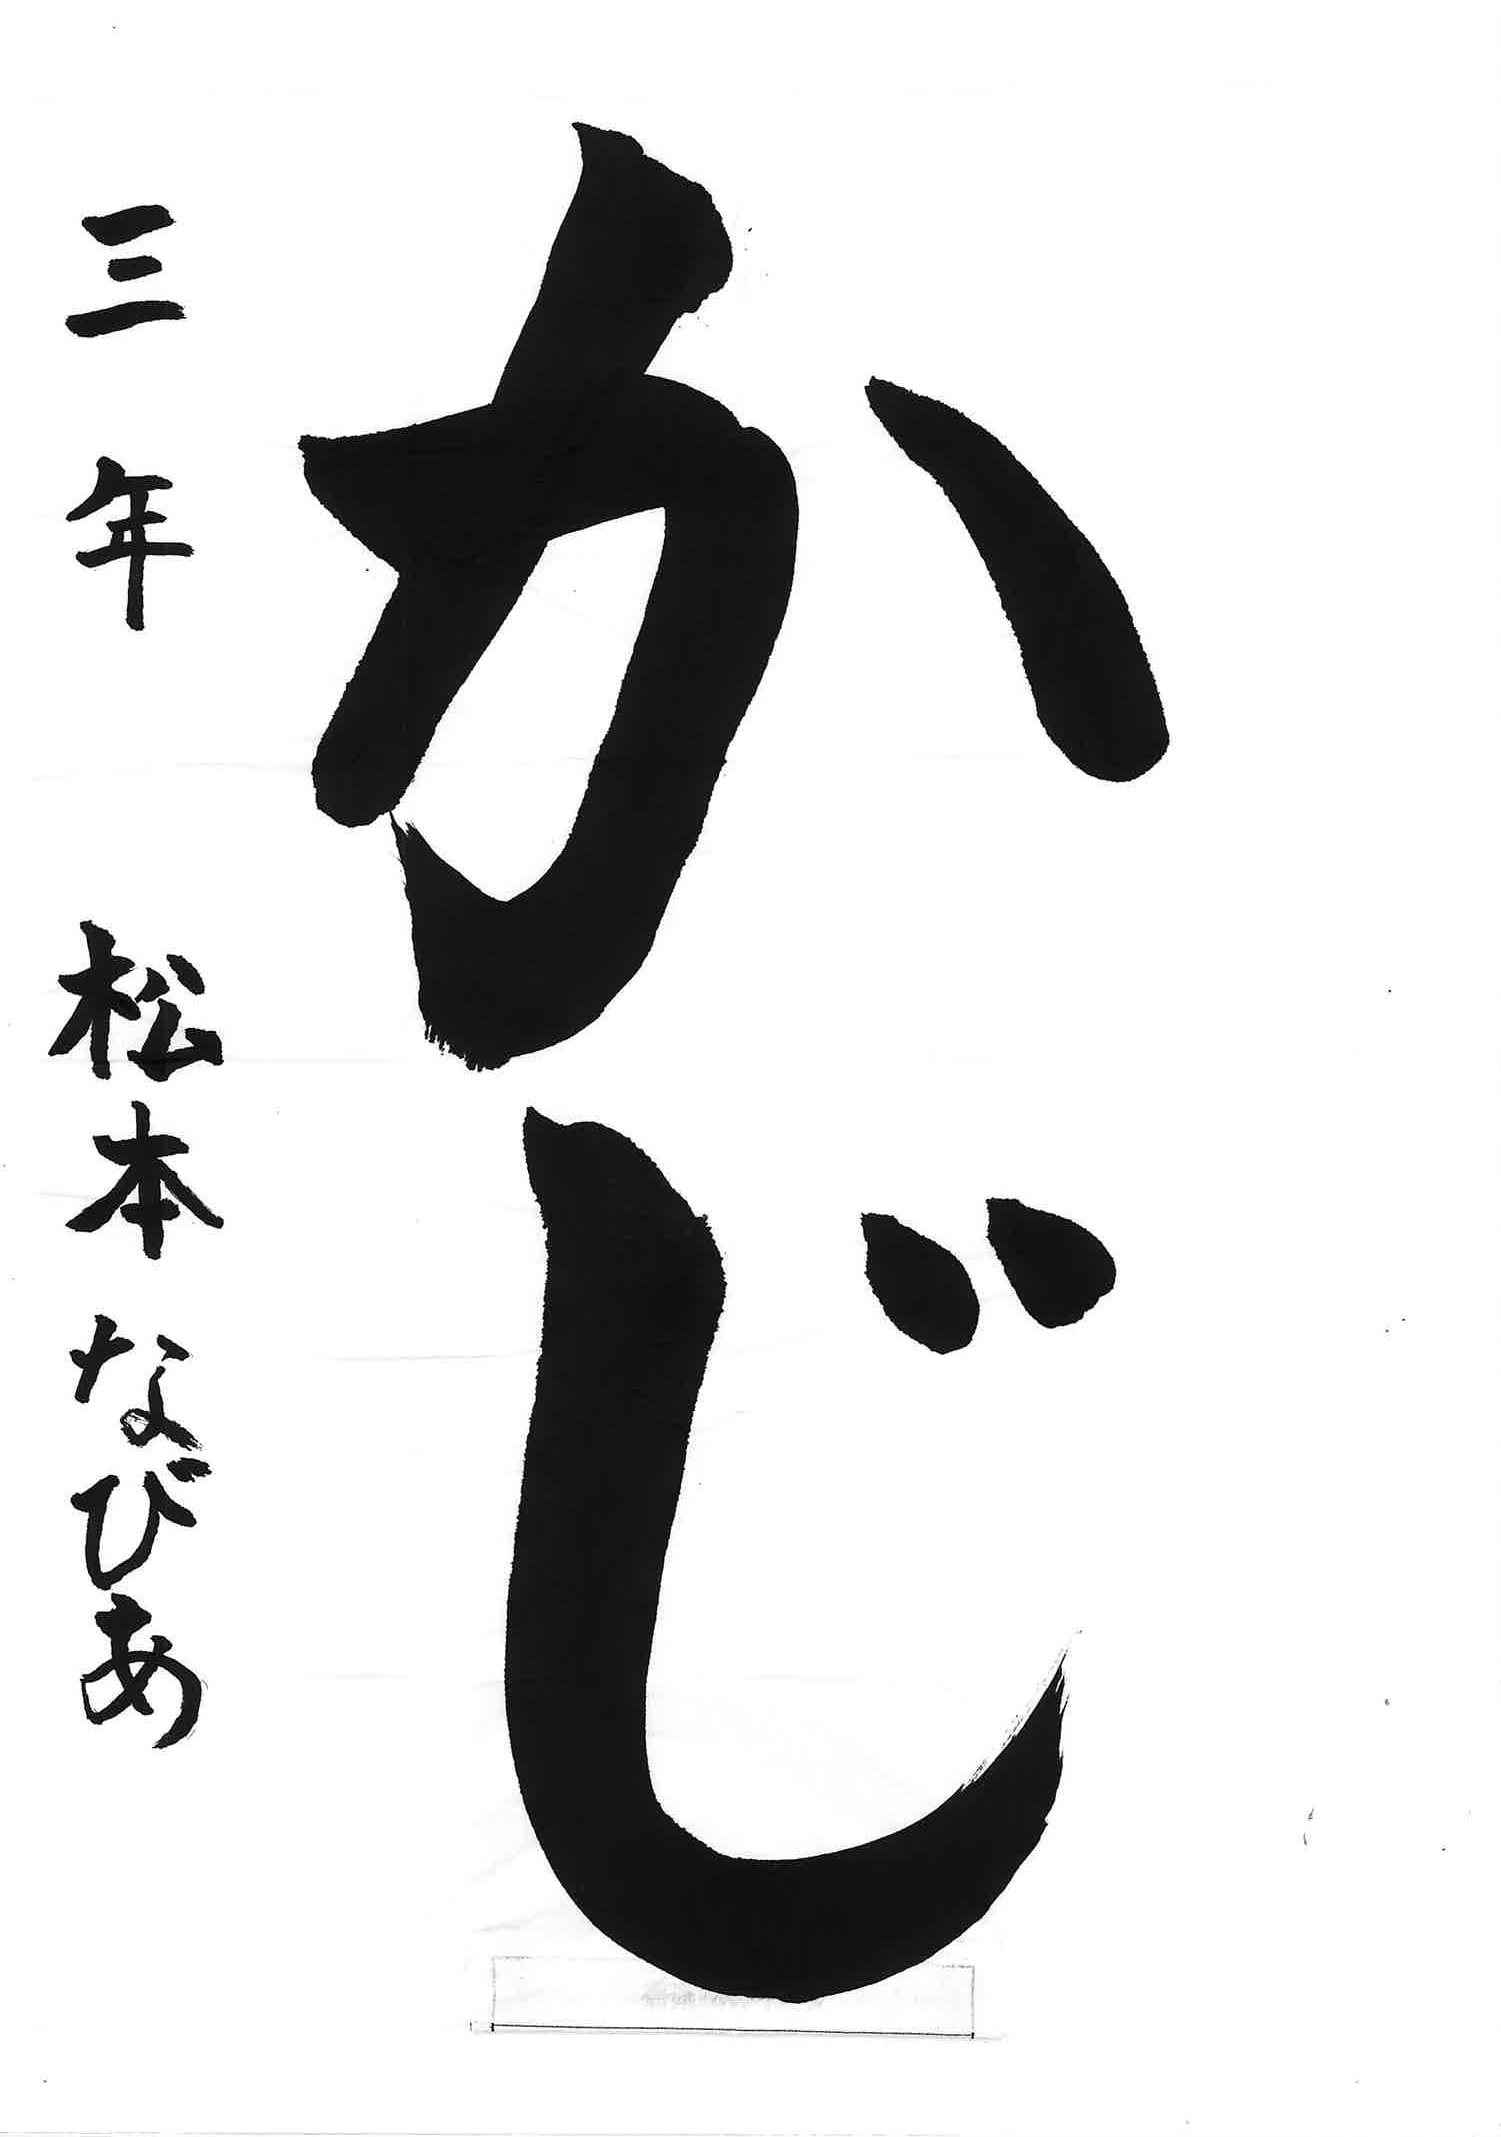 かじ
三年 松本なびあ